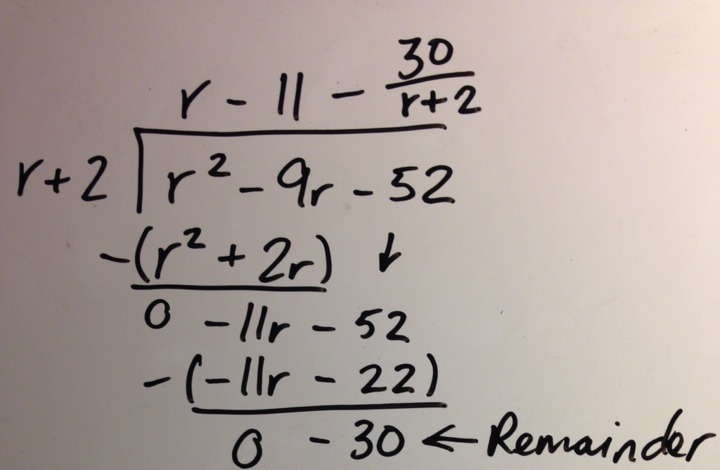 r - 11 - 30/(r+2)
r+2 | r² - 9r - 52
-(r² + 2r) ↓
0 - 11r - 52
-(-11r - 22)
0 - 30 ← Remainder